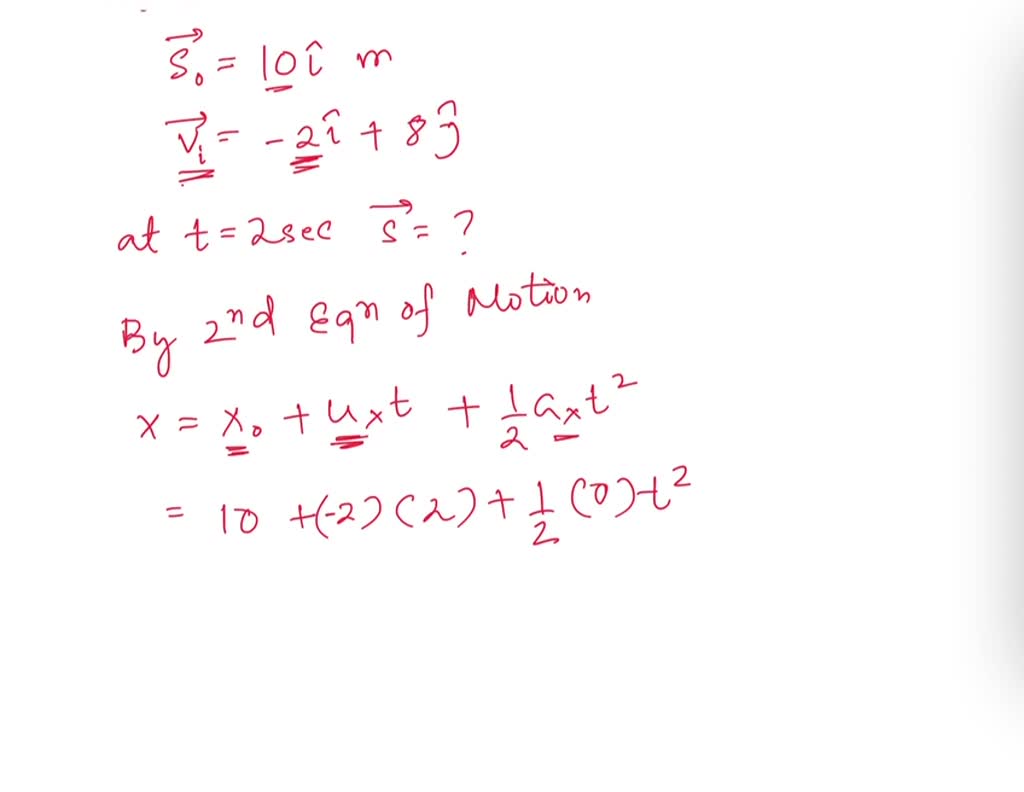 s⃗₀ = 10î m
v⃗ᵢ = -2î + 8ĵ
at t = 2sec s⃗ = ?
By 2nd Eqn of Motion
x = x₀ + uₓt + 1/2 aₓt²
= 10 +(-2)(2) + 1/2 (0)t²